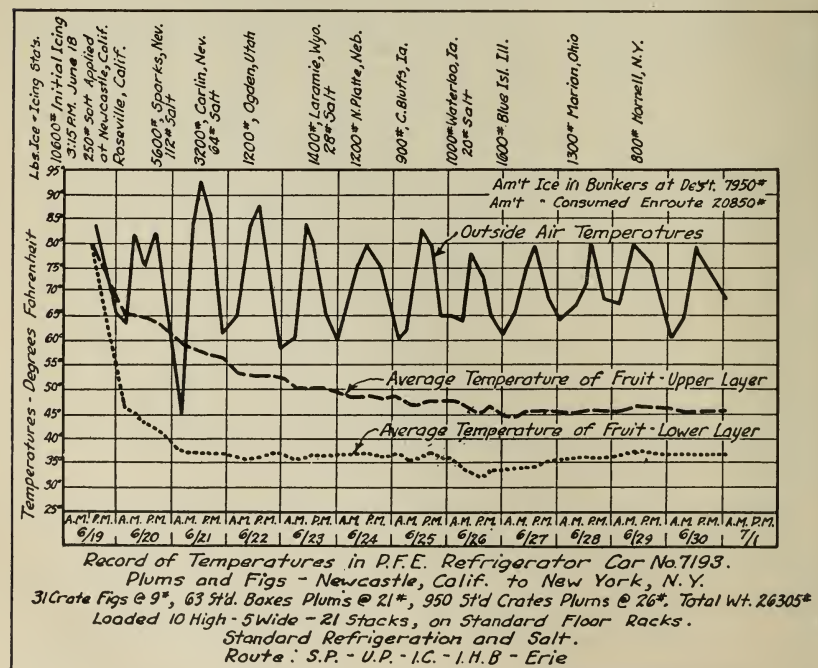 Lbs. Ice - Icing Sta's.
10600# Initial Icing
3:15 P.M. June 18
250# Salt Applied
at Newcastle, Calif.
Roseville, Calif.
5600# Sparks, Nev.
112# Salt
3200#, Carlin, Nev.
64# Salt
1200#, Ogden, Utah
1400#, Laramie, Wyo.
28# Salt
1200# N. Platte, Neb.
900#, C. Bluffs, Ia.
1000# Waterloo, Ia.
20# Salt
1600# Blue Isl. Ill.
1300# Marion, Ohio
800# Hornell, N.Y.
Am't Ice in Bunkers at Dest. 7950#
Am't " Consumed Enroute 20850#
Outside Air Temperatures
Average Temperature of Fruit - Upper Layer
Average Temperature of Fruit - Lower Layer
Temperatures - Degrees Fahrenheit
95°
90°
85°
80°
75°
70°
65°
60°
55°
50°
45°
40°
35°
30°
25°
A.M. P.M. A.M. P.M. A.M. P.M. A.M. P.M. A.M. P.M. A.M. P.M. A.M. P.M. A.M. P.M. A.M. P.M. A.M. P.M. A.M. P.M. A.M. P.M. A.M. P.M.
6/19 6/20 6/21 6/22 6/23 6/24 6/25 6/26 6/27 6/28 6/29 6/30 7/1
Record of Temperatures in P.F.E. Refrigerator Car No. 7193.
Plums and Figs - Newcastle, Calif. to New York, N.Y.
31 Crate Figs @ 9#, 63 St'd. Boxes Plums @ 21#, 950 St'd Crates Plums @ 26#. Total Wt. 26305#
Loaded 10 High - 5 Wide - 21 Stacks, on Standard Floor Racks.
Standard Refrigeration and Salt.
Route: S.P. - U.P. - I.C. - I.H.B - Erie